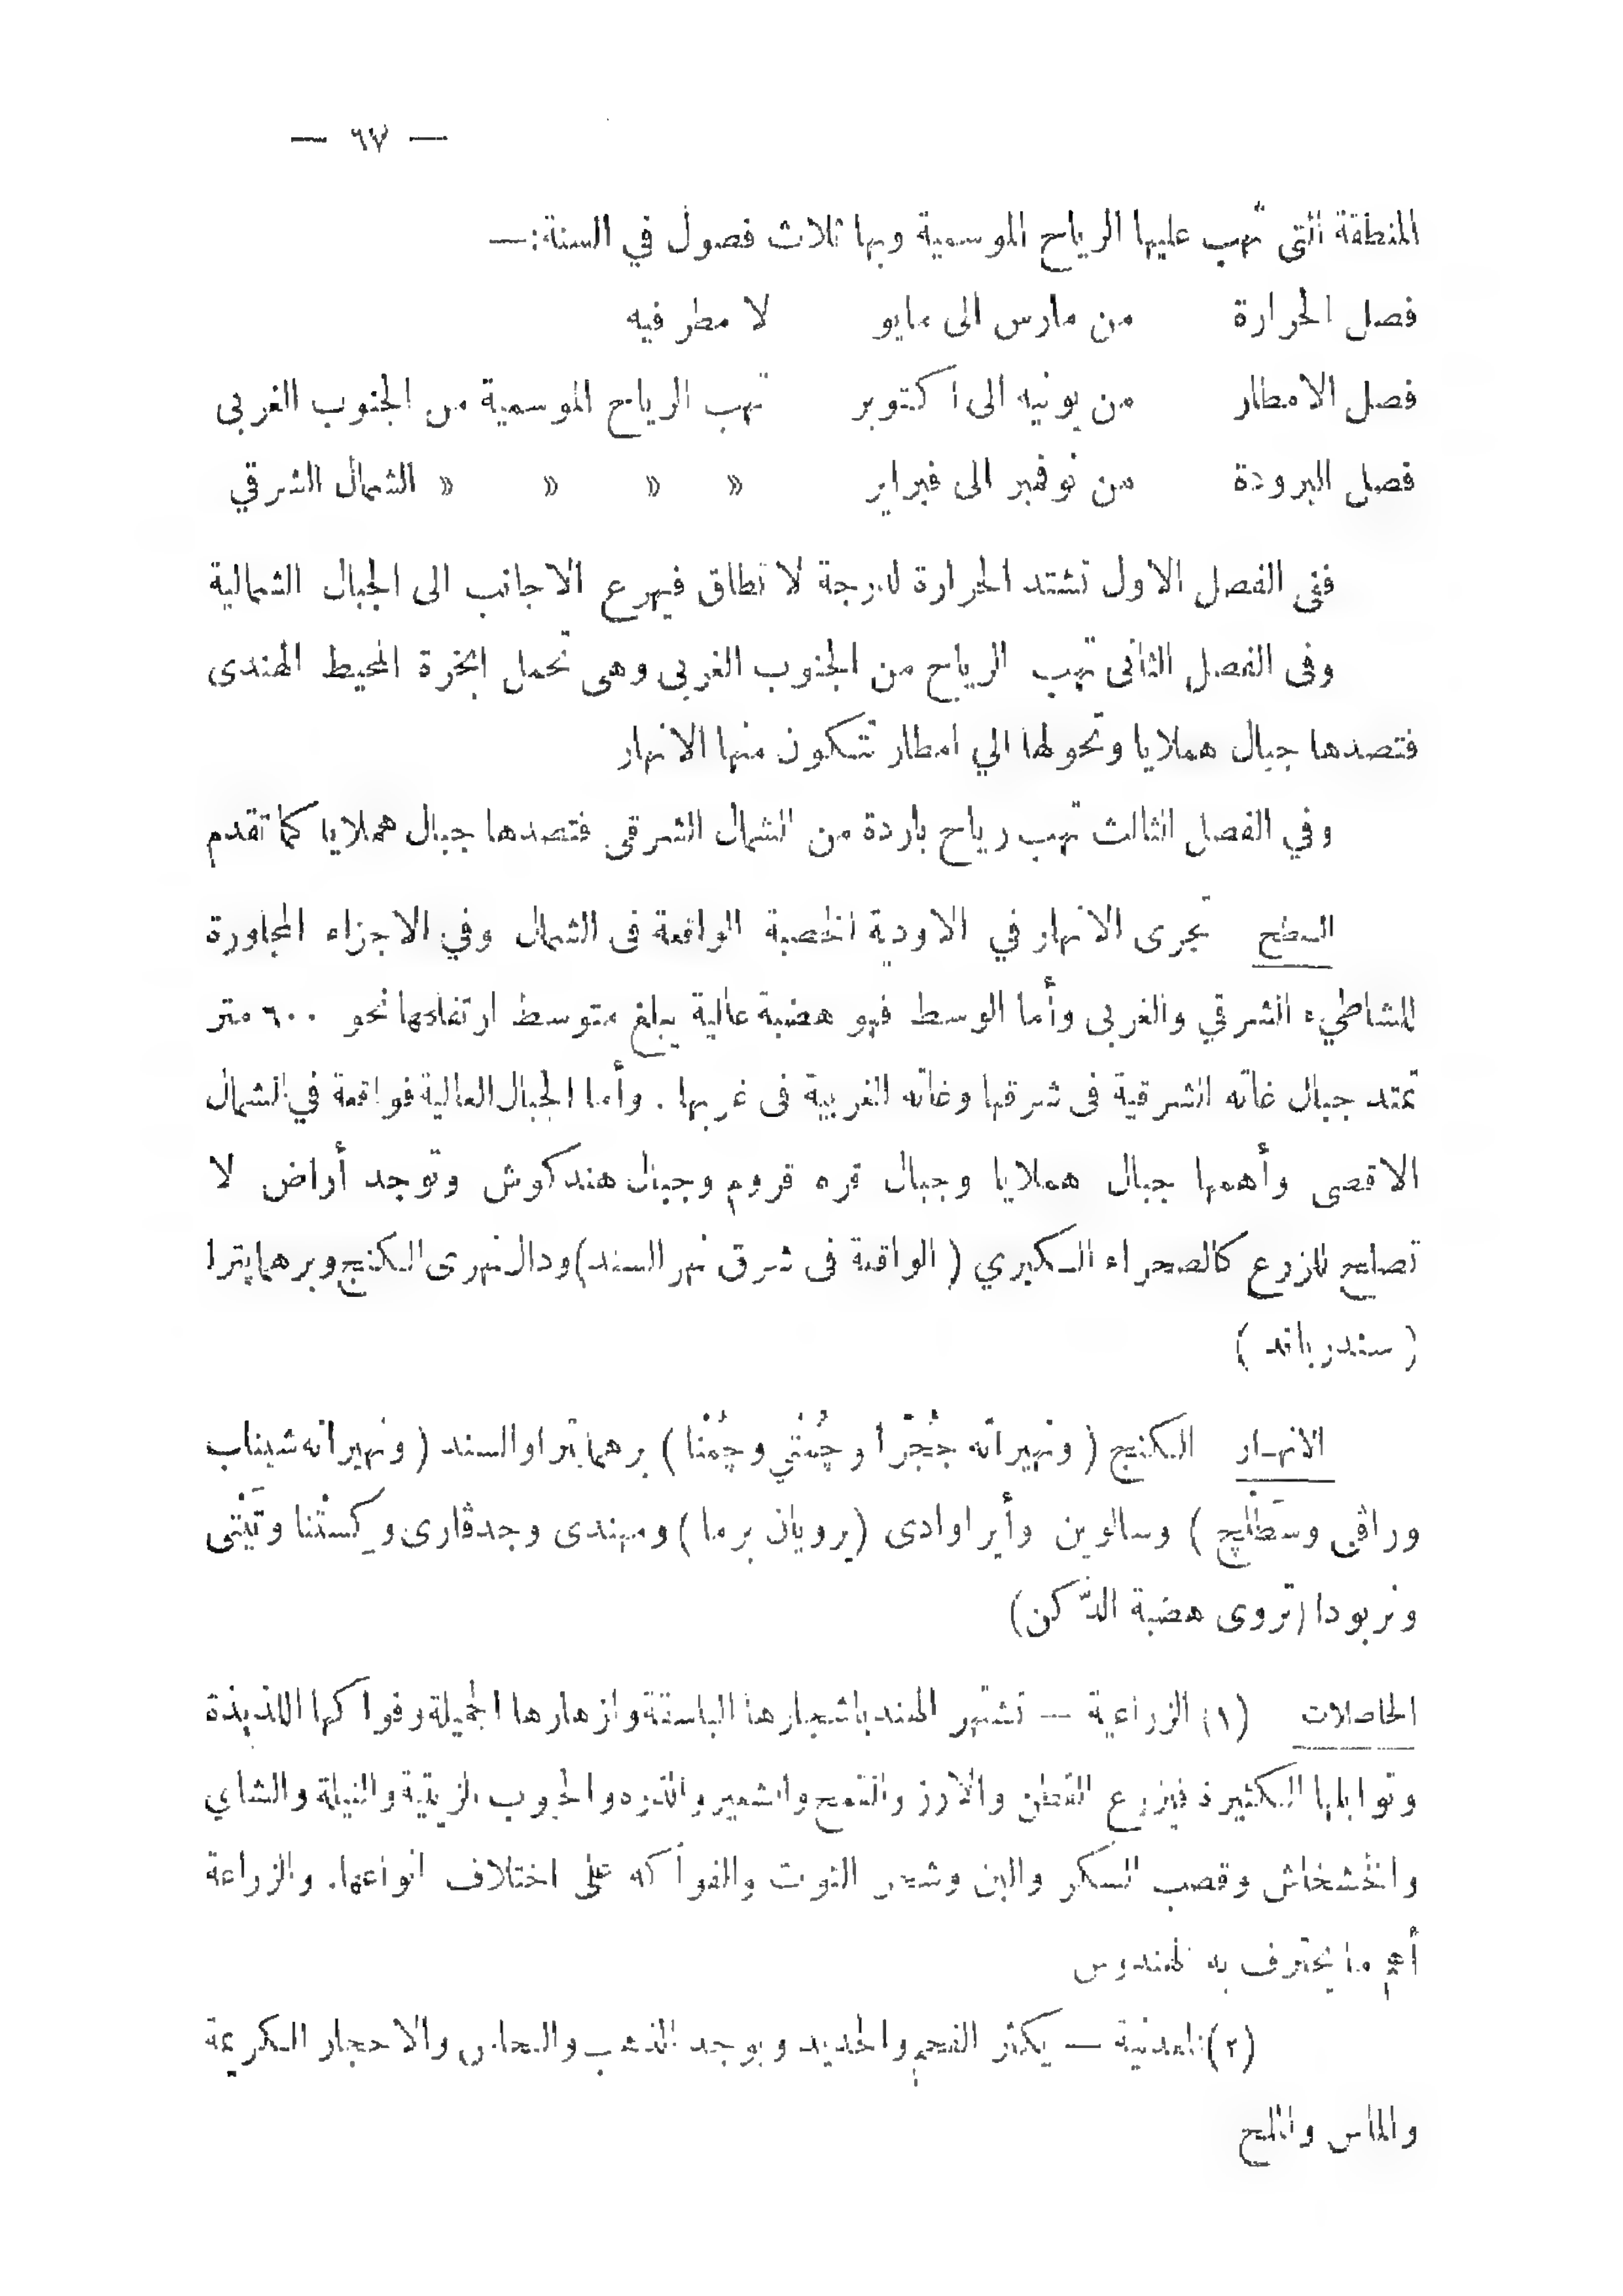 — ٦٧ —
المنطقة التى تهب عليها الرياح الموسمية وبها ثلاث فصول في السنة:—
فصل الحرارة من مارس الى مايو لا مطر فيه
فصل الامطار من يونيه الى اكتوبر تهب الرياح الموسمية من الجنوب الغربى
فصل البرودة من نوفمبر الى فبراير » » » » الشمال الشرقي
ففى الفصل الاول تشتد الحرارة لدرجة لا تطاق فيهرع الاجانب الى الجبال الشمالية
وفى الفصل الثانى تهب الرياح من الجنوب الغربى وهى تحمل ابخرة المحيط الهندى
فتصدها جبال هملايا وتحولها الي امطار تتكون منها الانهار
وفي الفصل الثالث تهب رياح باردة من الشمال الشرقى فتصدها جبال هملايا كما تقدم
السطح تجرى الانهار في الاودية الخصبة الواقعة فى الشمال وفي الاجزاء المجاورة
للشاطيء الشرقي والغربى وأما الوسط فهو هضبة عالية يبلغ متوسط ارتفاعها نحو ٦٠٠ متر
تمتد جبال غاته الشرقية فى شرقها وغاته الغربية فى غربها . وأما الجبال العالية فواقعة في الشمال
الاقصى وأهمها جبال هملايا وجبال قره قروم وجبال هندكوش وتوجد أراض لا
تصلح للزرع كالصحراء الكبري ( الواقعة فى شرق نهر السند) ودال نهرى الكنج وبرهمابترا
( سندرباند )
الانهار الكنج ( ونهيراته جُجْرا وجُمْتي وجُمْنا ) برهمابترا والسند ( ونهيراته شيناب
وراڤى وسَطْلِج ) وسالوين وأيراوادى (يرويان برما) ومهندى وجدڤارى وكِسْتْنا وتَبْتى
ونربودا (تروى هضبة الدّكن)
الحاصلات (١) الزراعية — تشتهر الهند باشجارها الباسقة وازهارها الجميلة وفواكها اللذيذة
وتوابلها الكثيرة فيزرع القطن والارز والقمح والشعير والحبوب الزيتية والنيلة والشاي
والخشخاش وقصب السكر والبن وشجر التوت والفواكه على اختلاف انواعها. والزراعة
أهم ما يحترف به الهندوس
(٢) المعدنية — يكثر الفحم والحديد ويوجد الذهب والنحاس والاحجار الكريمة
والماس والملح